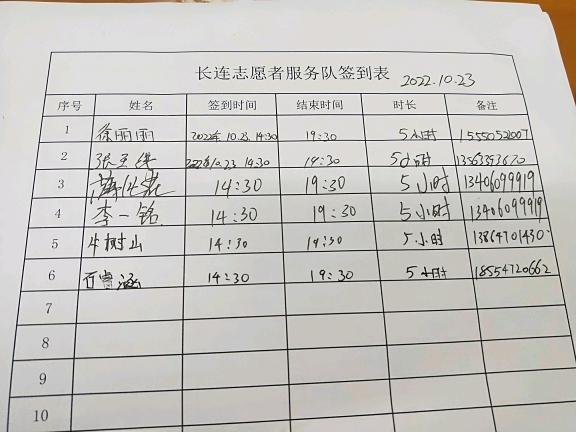 长连志愿者服务队签到表 2022.10.23
序号 姓名 签到时间 结束时间 时长 备注
1 徐丽丽 2022年10.23 14:30 19:30 5小时 15550521007
2 张 2022年10.23 14:30 19:30 5小时 13563353670
3 14:30 19:30 5小时 13406099919
4 李一铭 14:30 19:30 5小时 13406099919
5 牛树山 14:30 19:30 5小时 13864701430
6 百睿涵 14:30 19:30 5小时 18554720662
7
8
9
10